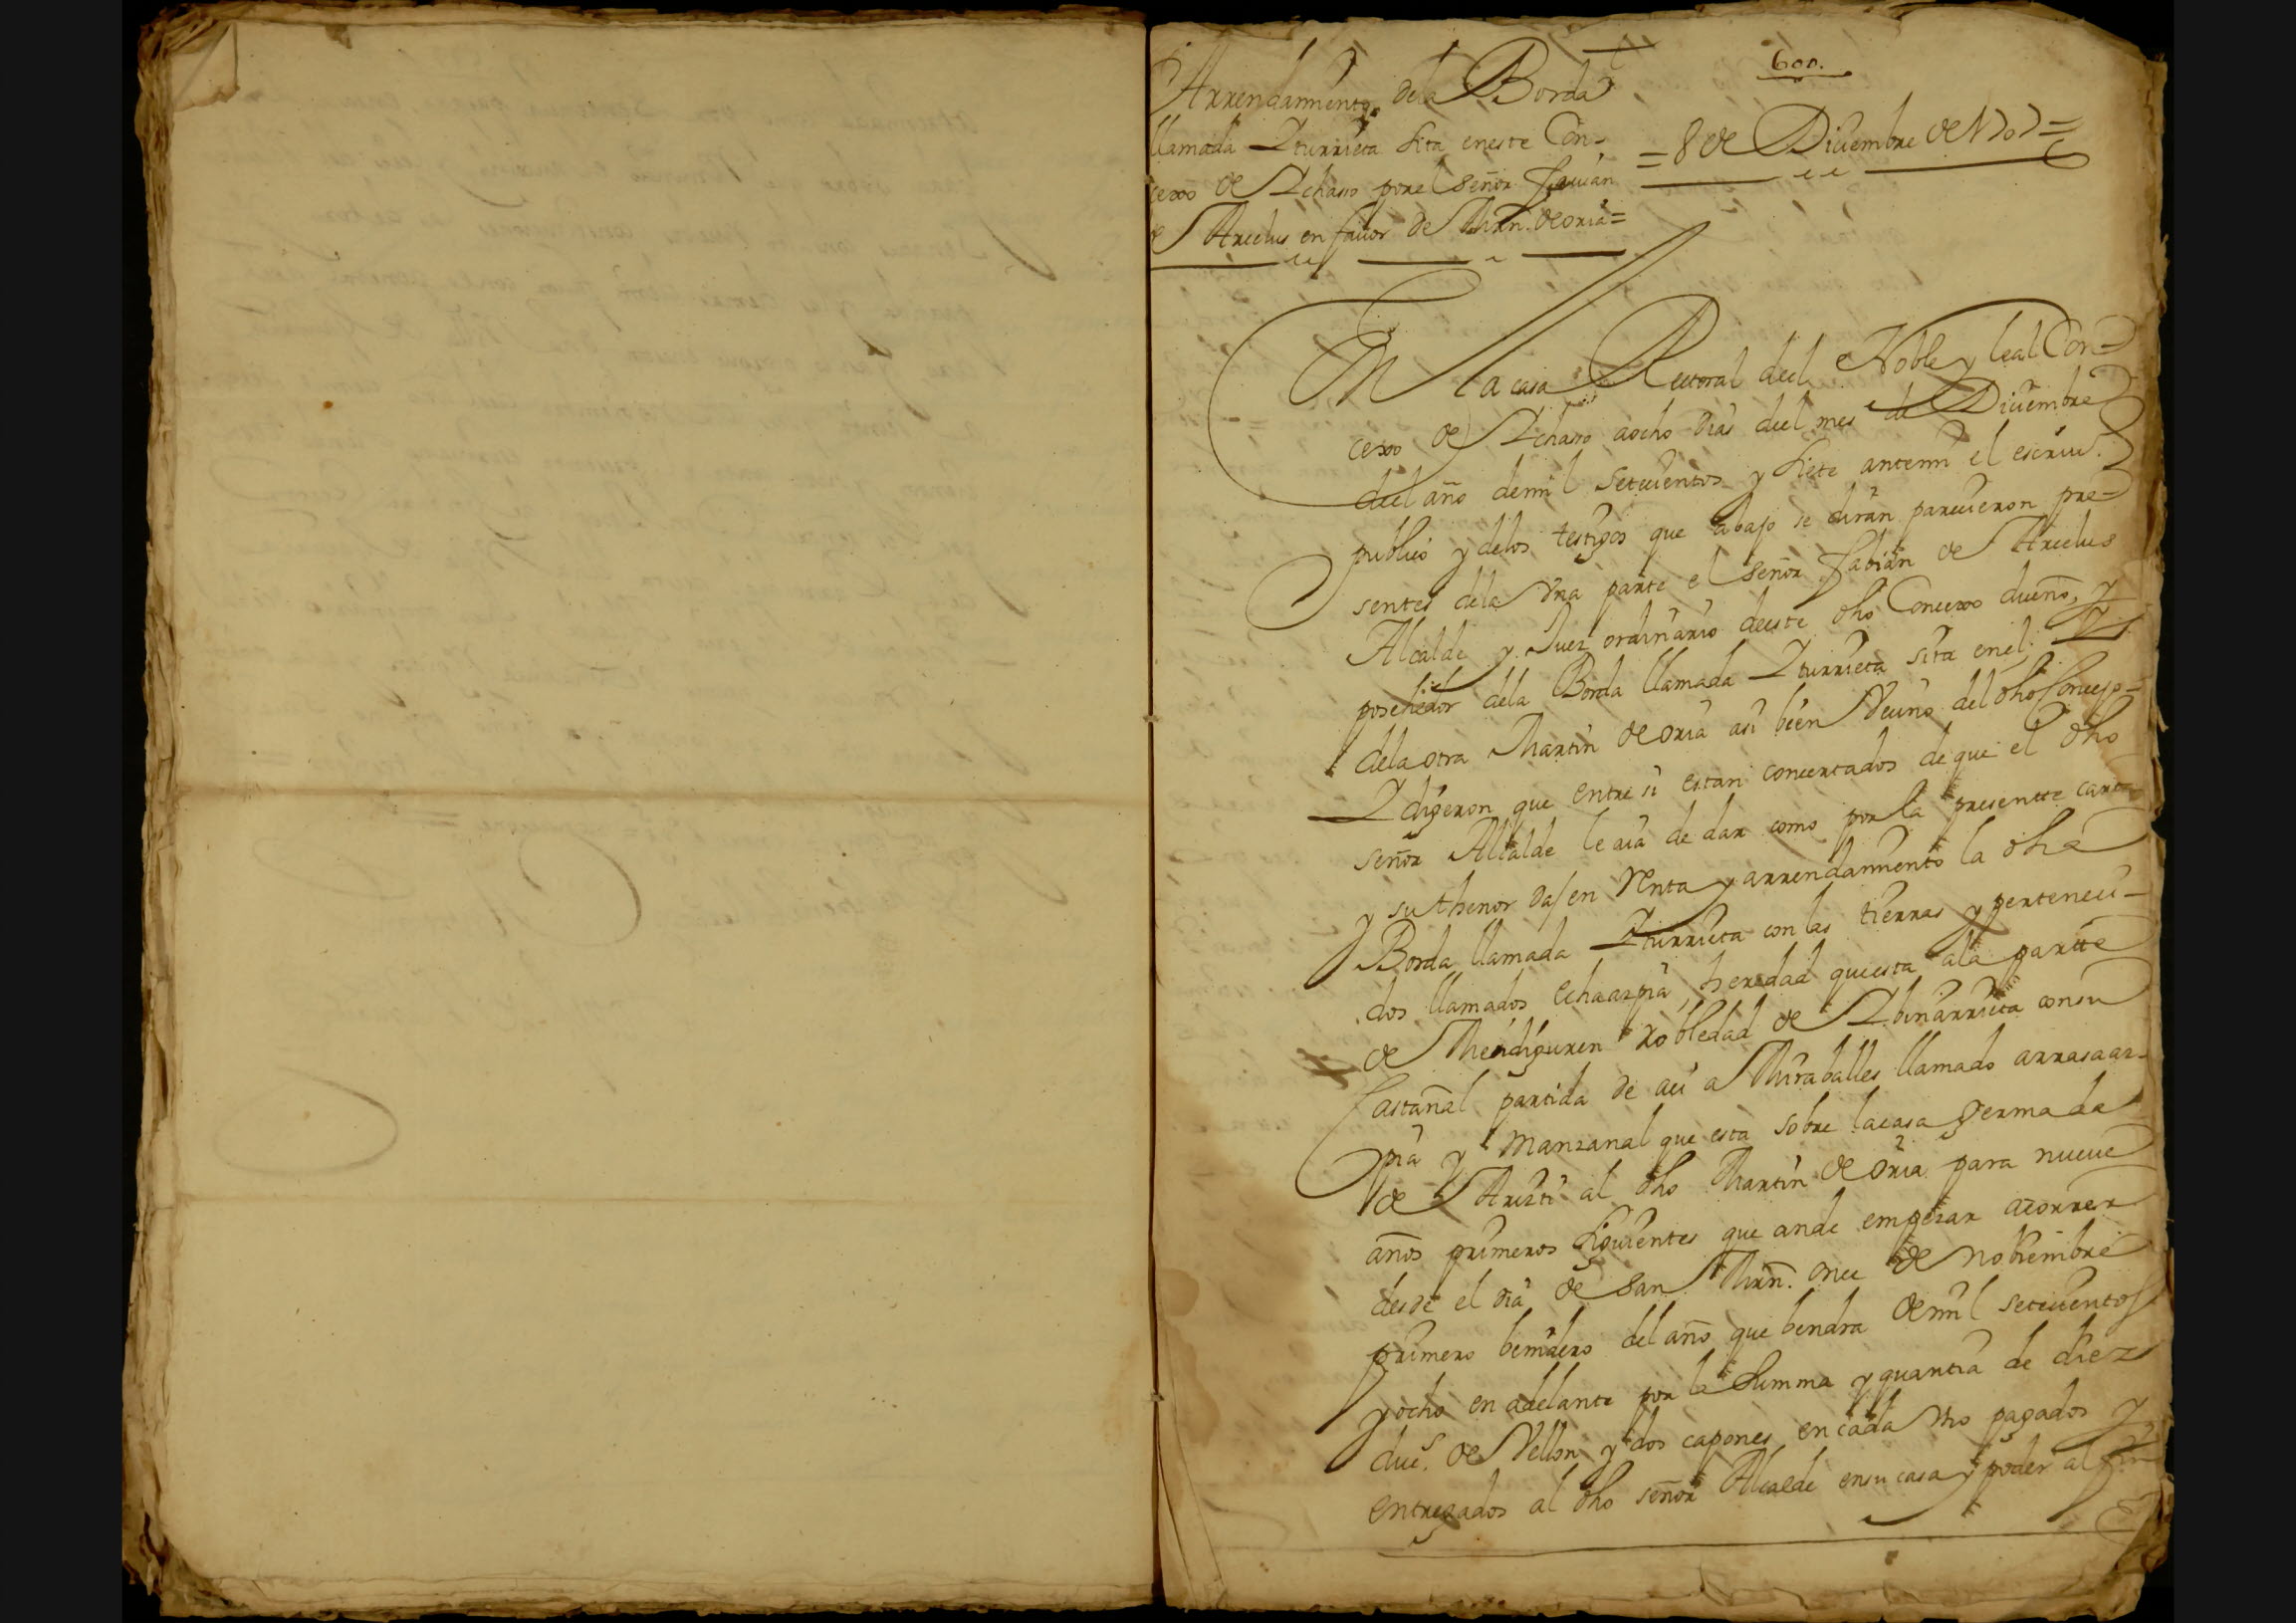 600.
Arrendamiento dela Borda
llamada Yturrieta sita eneste Con-
cexo de Ychasso porel señor Favian
de Areclus en favor de Mrn. de oria=
= 8 de Diciembre de 1707 =
En la casa Rectoral del Noble y leal Con=
cexo de Ychasso aocho dias del mes de Diciembre
del año demil Setecientos y siete antemi el escriuº.
publico y delos testigos que abajo se diran parecieron pre=
sentes dela Vna parte el señor fabian de Areclus
Alcalde y Juez ordinario deeste dho Concexo dueño, y
posehedor dela Borda llamada Yturrieta sita enel. Y
dela otra Martin de oria asi bien Vecino del dho Concejo=
Y digeron que entre si estan concertados de que el dho
señor Alcalde le aia de dar como por la presentte carta
y su thenor da en Renta y arrendamiento la dha
Borda llamada Yturrieta con las tierras y perteneci-
dos llamados echaazpia, heredad questa ala partte
de Mendiguren Robledad de Ybinarrieta consu
Castañal partida de aci a Miraballes llamado arrasaaz-
pia y Manzanal que esta sobre lacasa germada
de Arizti al dho Martin de oria para nueve
años primeros siguientes que ande empezar acorrer
desde el dia de San Mrn. once de nobiembre
primero benidero del año que bendra demil setecientos
y ocho en adelante por la Summa y quantia de diez
duc.s de Vellon y dos capones en cada Vno pagados y
entregados al dho señor Alcalde ensu casa y poder al fin